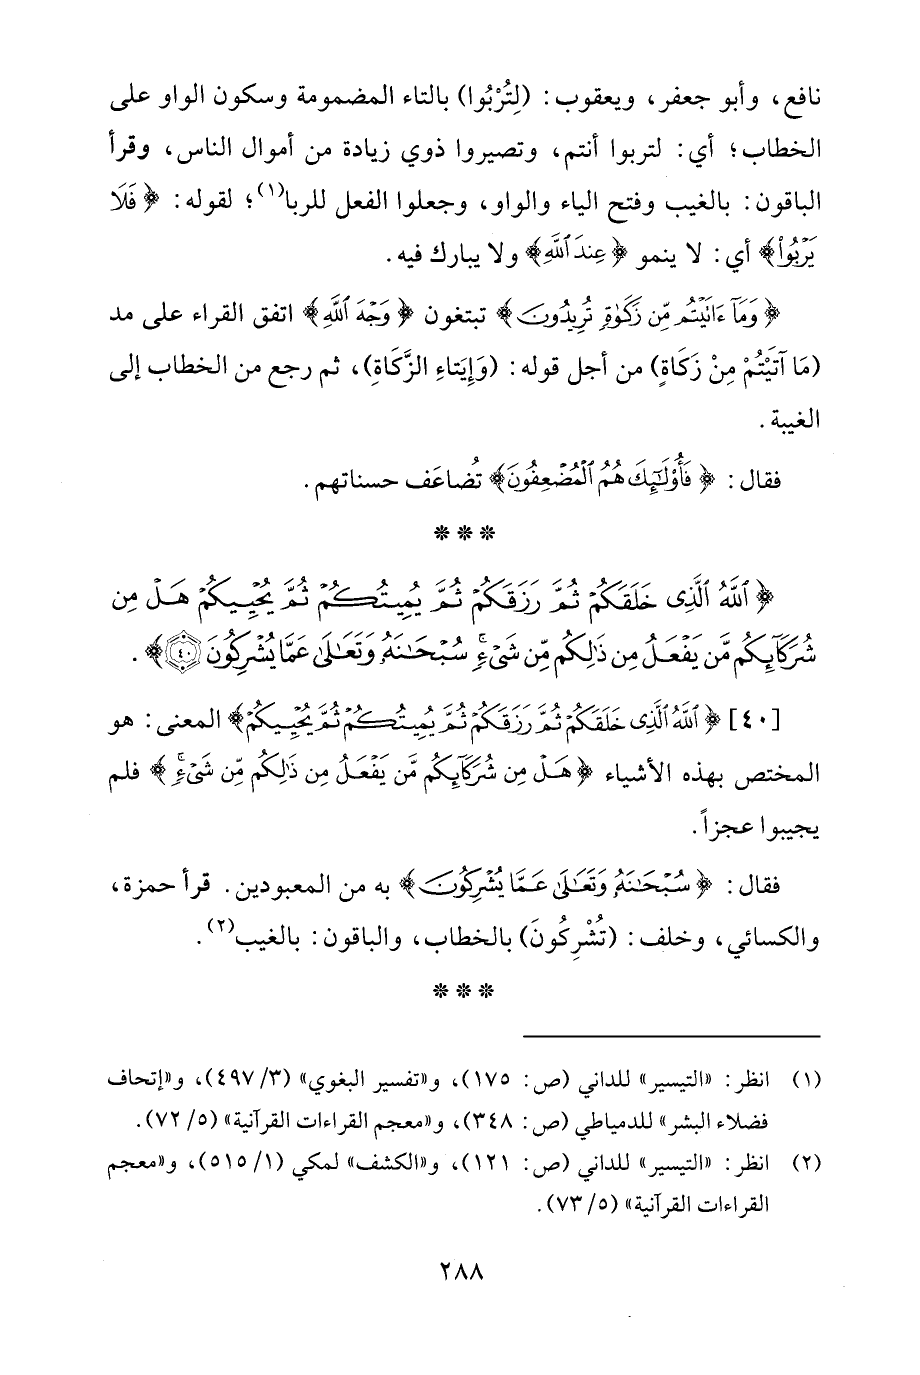 نافع، وأبو جعفر، ويعقوب: (لِتُرْبُوا) بالتاء المضمومة وسكون الواو على
الخطاب؛ أي: لتربوا أنتم، وتصيروا ذوي زيادة من أموال الناس، وقرأ
الباقون: بالغيب وفتح الياء والواو، وجعلوا الفعل للربا(١)؛ لقوله: ﴿فَلَا
يَرْبُوا۟﴾ أي: لا ينمو ﴿عِندَ ٱللَّهِ﴾ ولا يبارك فيه.
﴿وَمَآ ءَاتَيْتُم مِّن زَكَوٰةٍ تُرِيدُونَ﴾ تبتغون ﴿وَجْهَ ٱللَّهِ﴾ اتفق القراء على مد
(مَا آتَيْتُمْ مِنْ زَكَاةٍ) من أجل قوله: (وَإِيتَاءِ الزَّكَاةِ)، ثم رجع من الخطاب إلى
الغيبة.
فقال: ﴿فَأُو۟لَٰٓئِكَ هُمُ ٱلْمُضْعِفُونَ﴾ تُضاعَف حسناتهم.
***
﴿ٱللَّهُ ٱلَّذِى خَلَقَكُمْ ثُمَّ رَزَقَكُمْ ثُمَّ يُمِيتُكُمْ ثُمَّ يُحْيِيكُمْ هَلْ مِن
شُرَكَآئِكُم مَّن يَفْعَلُ مِن ذَٰلِكُم مِّن شَىْءٍ سُبْحَٰنَهُۥ وَتَعَٰلَىٰ عَمَّا يُشْرِكُونَ ٤٠﴾.
[٤٠] ﴿ٱللَّهُ ٱلَّذِى خَلَقَكُمْ ثُمَّ رَزَقَكُمْ ثُمَّ يُمِيتُكُمْ ثُمَّ يُحْيِيكُمْ﴾ المعنى: هو
المختص بهذه الأشياء ﴿هَلْ مِن شُرَكَآئِكُم مَّن يَفْعَلُ مِن ذَٰلِكُم مِّن شَىْءٍ﴾ فلم
يجيبوا عجزاً.
فقال: ﴿سُبْحَٰنَهُۥ وَتَعَٰلَىٰ عَمَّا يُشْرِكُونَ﴾ به من المعبودين. قرأ حمزة،
والكسائي، وخلف: (تُشْرِكُونَ) بالخطاب، والباقون: بالغيب(٢).
***
(١) انظر: «التيسير» للداني (ص: ١٧٥)، و«تفسير البغوي» (٣/ ٤٩٧)، و«إتحاف
فضلاء البشر» للدمياطي (ص: ٣٤٨)، و«معجم القراءات القرآنية» (٥/ ٧٢).
(٢) انظر: «التيسير» للداني (ص: ١٢١)، و«الكشف» لمكي (١/ ٥١٥)، و«معجم
القراءات القرآنية» (٥/ ٧٣).
٢٨٨